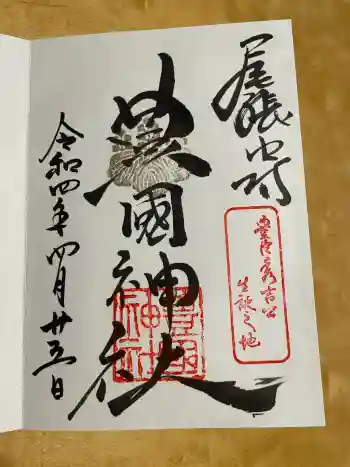 尾張中村
豊臣秀吉公
生誕之地
豊國神社
豊國
神社
令和四年四月廿五日